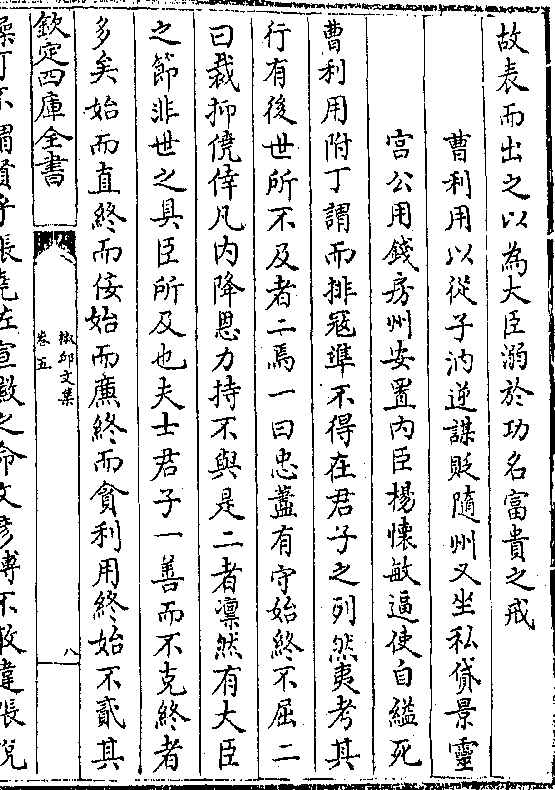 故表而出之以為大臣溺於功名富貴之戒
曹利用以從子汭逆謀貶隨州又坐私貸景靈
宮公用錢房州安置內臣楊懷敏逼使自縊死
曹利用附丁謂而排冦準不得在君子之列然夷考其
行有後世所不及者二焉一曰忠藎有守始終不屈二
曰裁抑僥倖凡內降恩力持不與是二者凛然有大臣
之節非世之具臣所及也夫士君子一善而不克終者
多矣始而直終而佞始而廉終而貪利用終始不貳其
欽定四庫全書
檆邱文集
卷五
八
操可不謂賢乎張堯佐宣徽之命文彦博不敢違張說